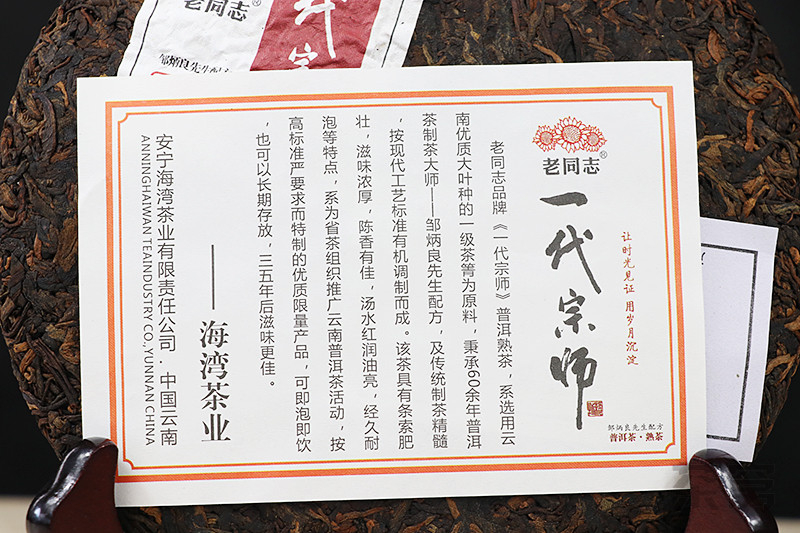 老同志
一代宗
邹炳良先生配
老同志®
让时光见证 用岁月沉淀
一代宗师
邹炳良先生配方
普洱茶·熟茶
老同志品牌《一代宗师》普洱熟茶，系选用云
南优质大叶种的一级茶箐为原料，秉承60余年普洱
茶制茶大师——邹炳良先生配方，及传统制茶精髓
，按现代工艺标准有机调制而成。该茶具有条索肥
壮，滋味浓厚，陈香有佳，汤水红润油亮，经久耐
泡等特点，系为省茶组织推广云南普洱茶活动，按
高标准严要求而特制的优质限量产品，可即泡即饮
，也可以长期存放，三五年后滋味更佳。
——海湾茶业
安宁海湾茶业有限责任公司．中国云南
ANNINGHAIWAN TEAINDUSTRY CO.YUNNAN CHINA